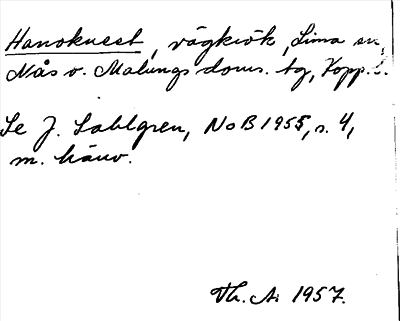 Hanokneet, vägkrök, Lima sn,
Nås o. Malungs doms. tg, Kopp. l.
Se J. Sahlgren, NoB 1955, s. 4,
m. hänv.
Th. A. 1957.